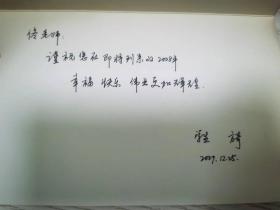 佟老师
谨祝您在即将到来的2008年
幸福 快乐 伟业更加辉煌
2007.12.25.